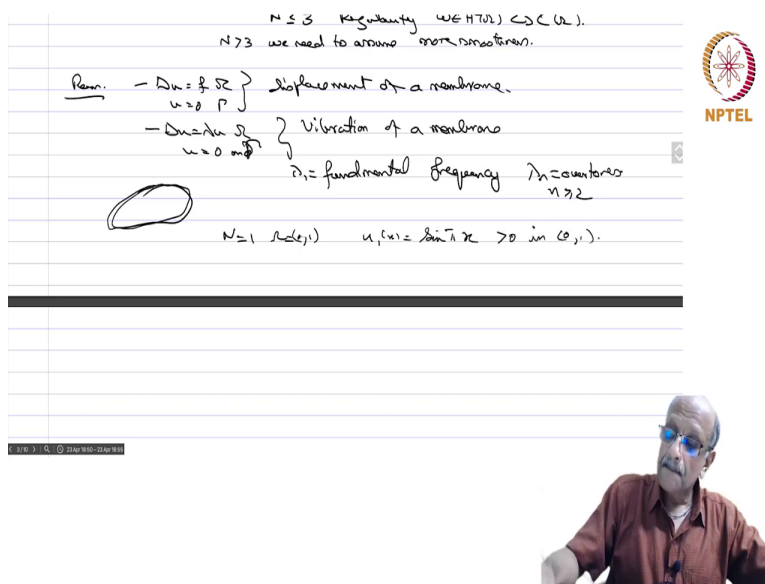 N ≤ 3 Regularity w ∈ H²(Ω) ⊂> C(Ω̄).
N > 3 we need to assume more smoothness.
Rem. -Δu = f Ω } displacement of a membrane.
u = 0 Γ
-Δu = λu Ω } Vibration of a membrane
u = 0 on Γ
λ₁ = fundmental frequency λn = overtones
n ≥ 2
N = 1 Ω = (0,1) u₁(x) = sin πx > 0 in (0,1).
NPTEL
3 / 10 23 Apr 18:50 - 23 Apr 18:55